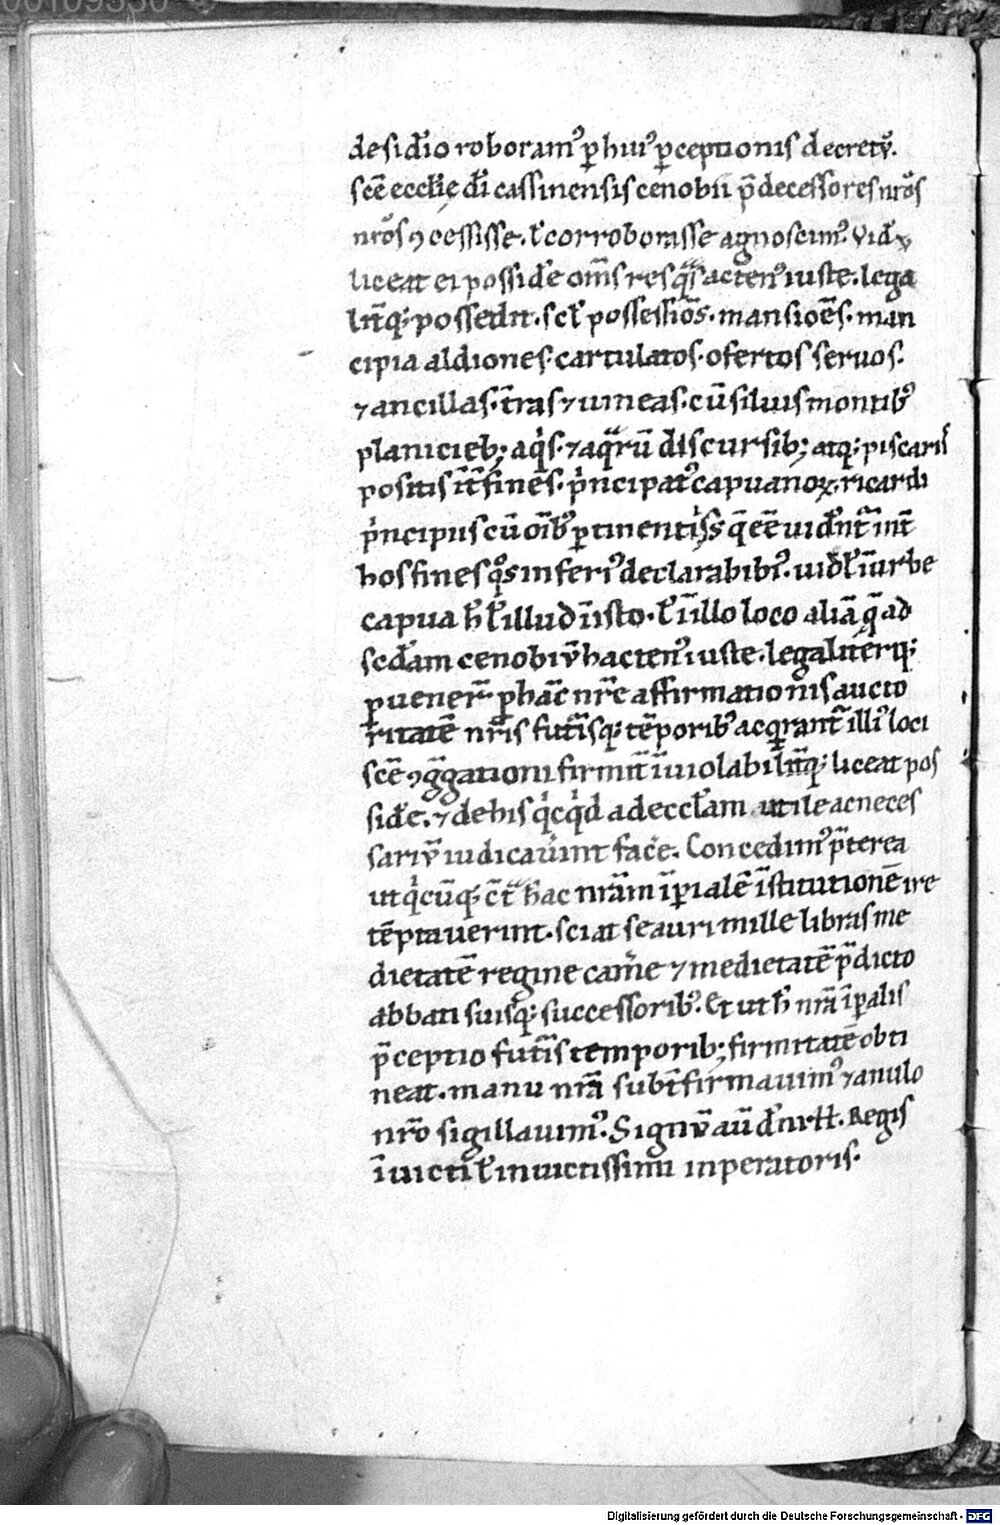 desid̄io roboram᷒ ꝑ hui᷒ p̄ceptionis decretū.
sc̄e eccl̄ie dī cassinensis cenobii p̄decessores nr̄os
nr̄os ꝯcessisse. ł corroborasse agnoscim᷒. Vid̄
liceat ei possid̄e om̄s res q̄s acten᷒ iuste. lega
lit̄q; possedit. scł possession̄s. mansiōes. man
cipia aldiones. cartulatos. ofertos seruos.
⁊ ancillas. t̄ras ⁊ uineas. cū siluis montib᷒
planicieb; aqⁱs. ⁊ aqᵃrū discursib; atq; piscariis
positis īt̄ fines. pⁱncipat᷒ capuanoꝝ. ricardi
pⁱncipis cū oīb᷒ ꝑtinentiis q̄ ēē uid̄nt̄ int̄
hos fines qᵒs inferi᷒ declarabibi᷒. uid̄ł ī urbe
capua h̄ ł illud īisto. ł ī illo loco aliā q̄ ad
sc̄dam cenobiū hacten᷒ iuste. legaliterq;
ꝑuener̄ ꝑ hāc nr̄e affirmationis aucto
ritatē nr̄is futī̄sq; tēporib᷒ acqᵢrant̄ illi᷒ loci
sc̄e ꝯgᵃgationi firmit̄ īuiolabilit̄q; liceat pos
sid̄e. ⁊ de his qⁱcqⁱd ad eccl̄am utile ac neces
sariū iudicauīnt fac̄e. Concedim᷒ p̄terea
ut qⁱcūq; c̄t̄ hac nr̄am īp̄ialē īstitutionē ire
tēptauerint. sciat se auri mille libras me
dietatē regine cam̄e ⁊ medietatē p̄dicto
abbati suisq; successorib᷒. Et ut h̄ nr̄a īp̄alis
p̄ceptio fut̄is temporib; firmitatē obti
neat. manu nr̄a subt̄ firmauim᷒ ⁊ anulo
nr̄o sigillauim᷒. Signū aū d̄nr H. Regis
īuicti ł inuictissimi inperatoris.
Digitalisierung gefördert durch die Deutsche Forschungsgemeinschaft - DFG